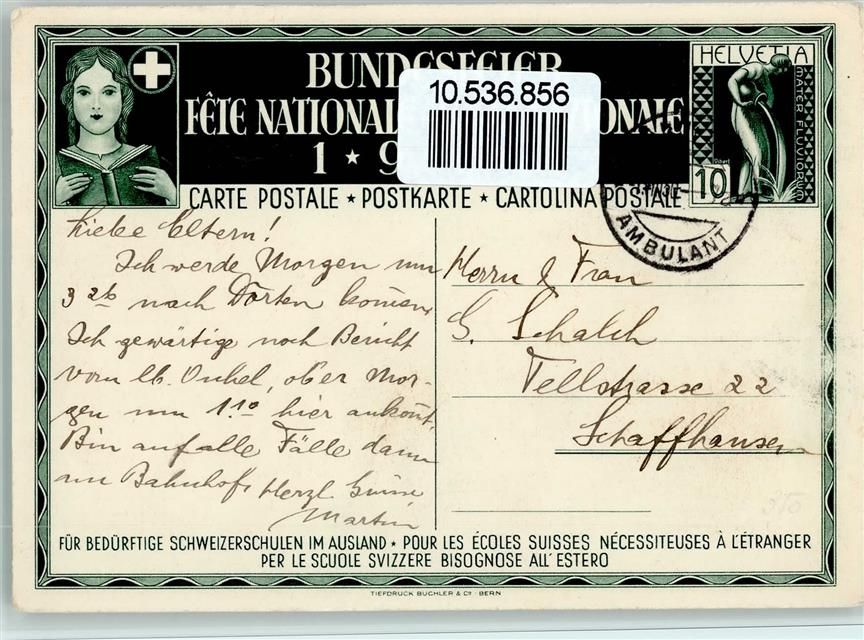 BUNDESFEIER
FÊTE NATIONAL ONALE
1 ★ 9
10.536.856
HELVETIA
MATER FLUVIORUM
10
CARTE POSTALE ★ POSTKARTE ★ CARTOLINA POSTALE
AMBULANT
Liebe Eltern!
Ich werde Morgen um
3 26 nach Dorten kommen,
Ich gewärtige noch Bericht
vom lb. Onkel, ob er Mor-
gen um 1.10 hier ankomt.
Bin auf alle Fälle dann
am Bahnhof. Herzl. Grüsse
Martin
Herrn & Frau
G. Schalch
Tellstrasse 22
Schaffhausen
350
FÜR BEDÜRFTIGE SCHWEIZERSCHULEN IM AUSLAND ★ POUR LES ÉCOLES SUISSES NÉCESSITEUSES À L'ÉTRANGER
PER LE SCUOLE SVIZZERE BISOGNOSE ALL' ESTERO
TIEFDRUCK BÜCHLER & Co · BERN